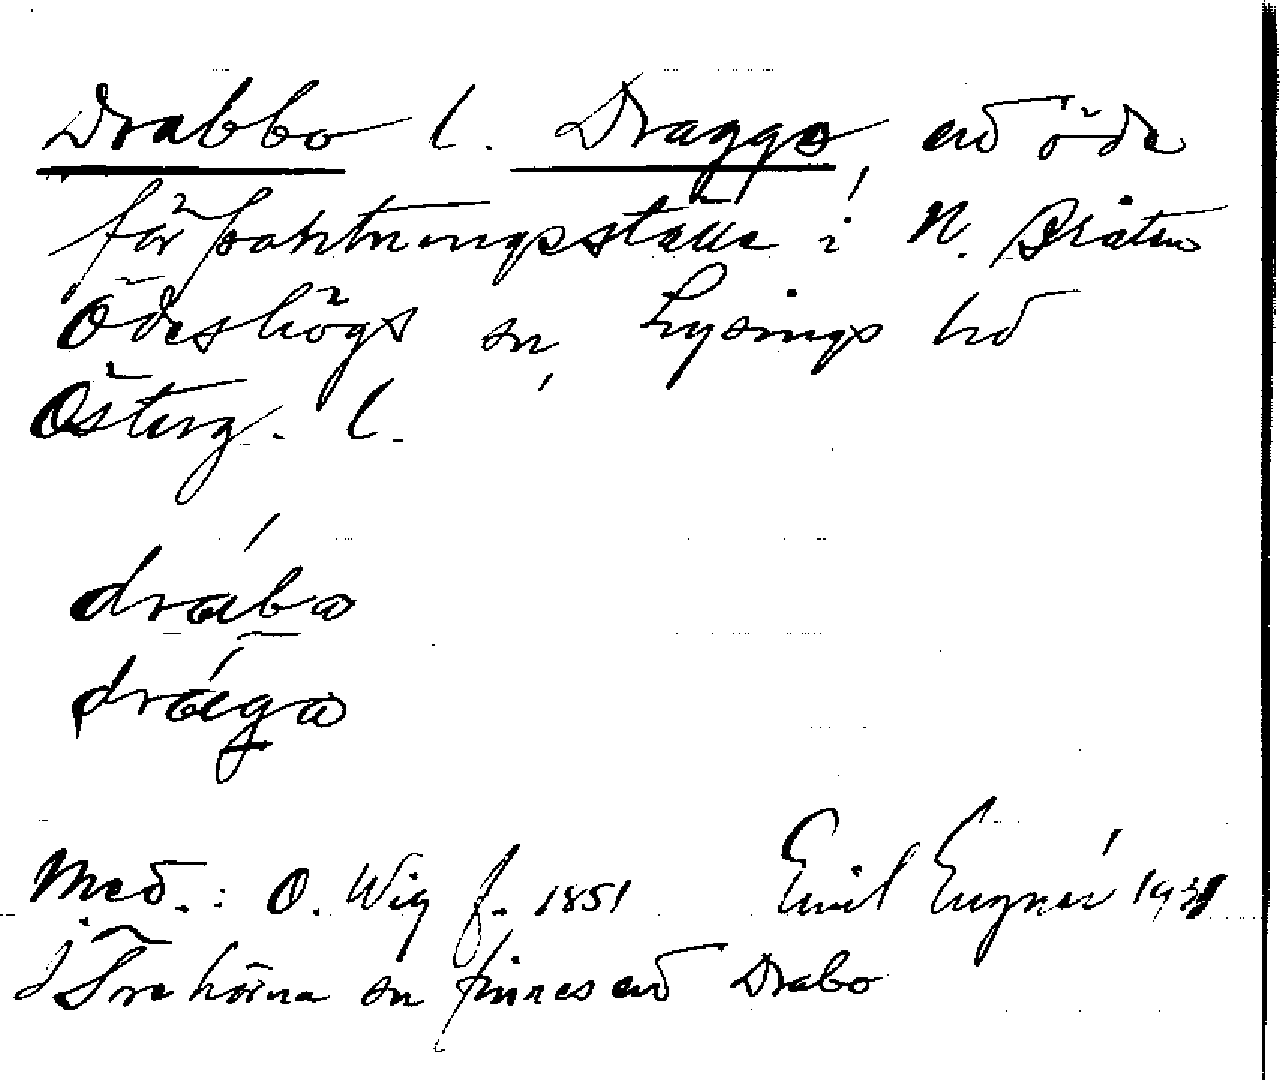 Drabbo l. Draggo, ett öde
förpaktningsställe i N. Bråten
Ödeshögs sn, Lysings hd
Österg. l.
drábo
drága
Med.: O. Wig f. 1851 Emil 193
I Trehörna sn finnes ett Drabo